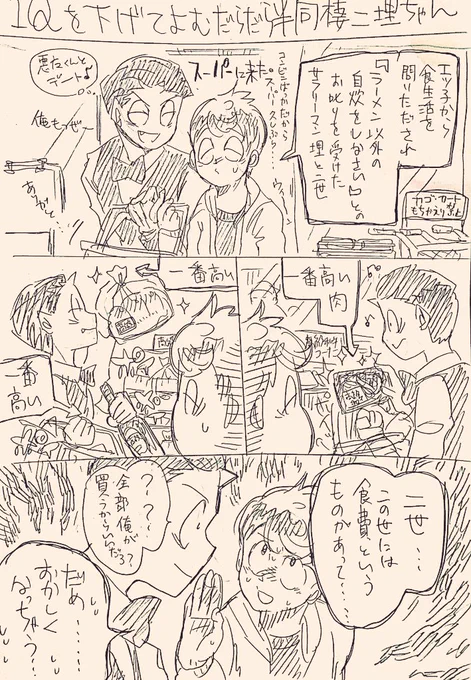 IQを下げてよむだらだら半同棲二理ちゃん
エツ子から
食生活を
問いただされ
「ラーメン以外の
自炊をしなさい」との
お叱りを受けた
サラリーマン理と二世
カゴ・カート
もちかえり禁止
スーパーに来た。
コンビニばっかだから
スーパー久しぶり…
悪友くんと
デート♪
俺もっぜ〜
一番高い
肉
一番高い
一番
高い
二世…
この世には
食費という
ものがあって…
?…?…
全部俺が
買うからいいだろ?
だめ……
おかしく
なっちゃう…?